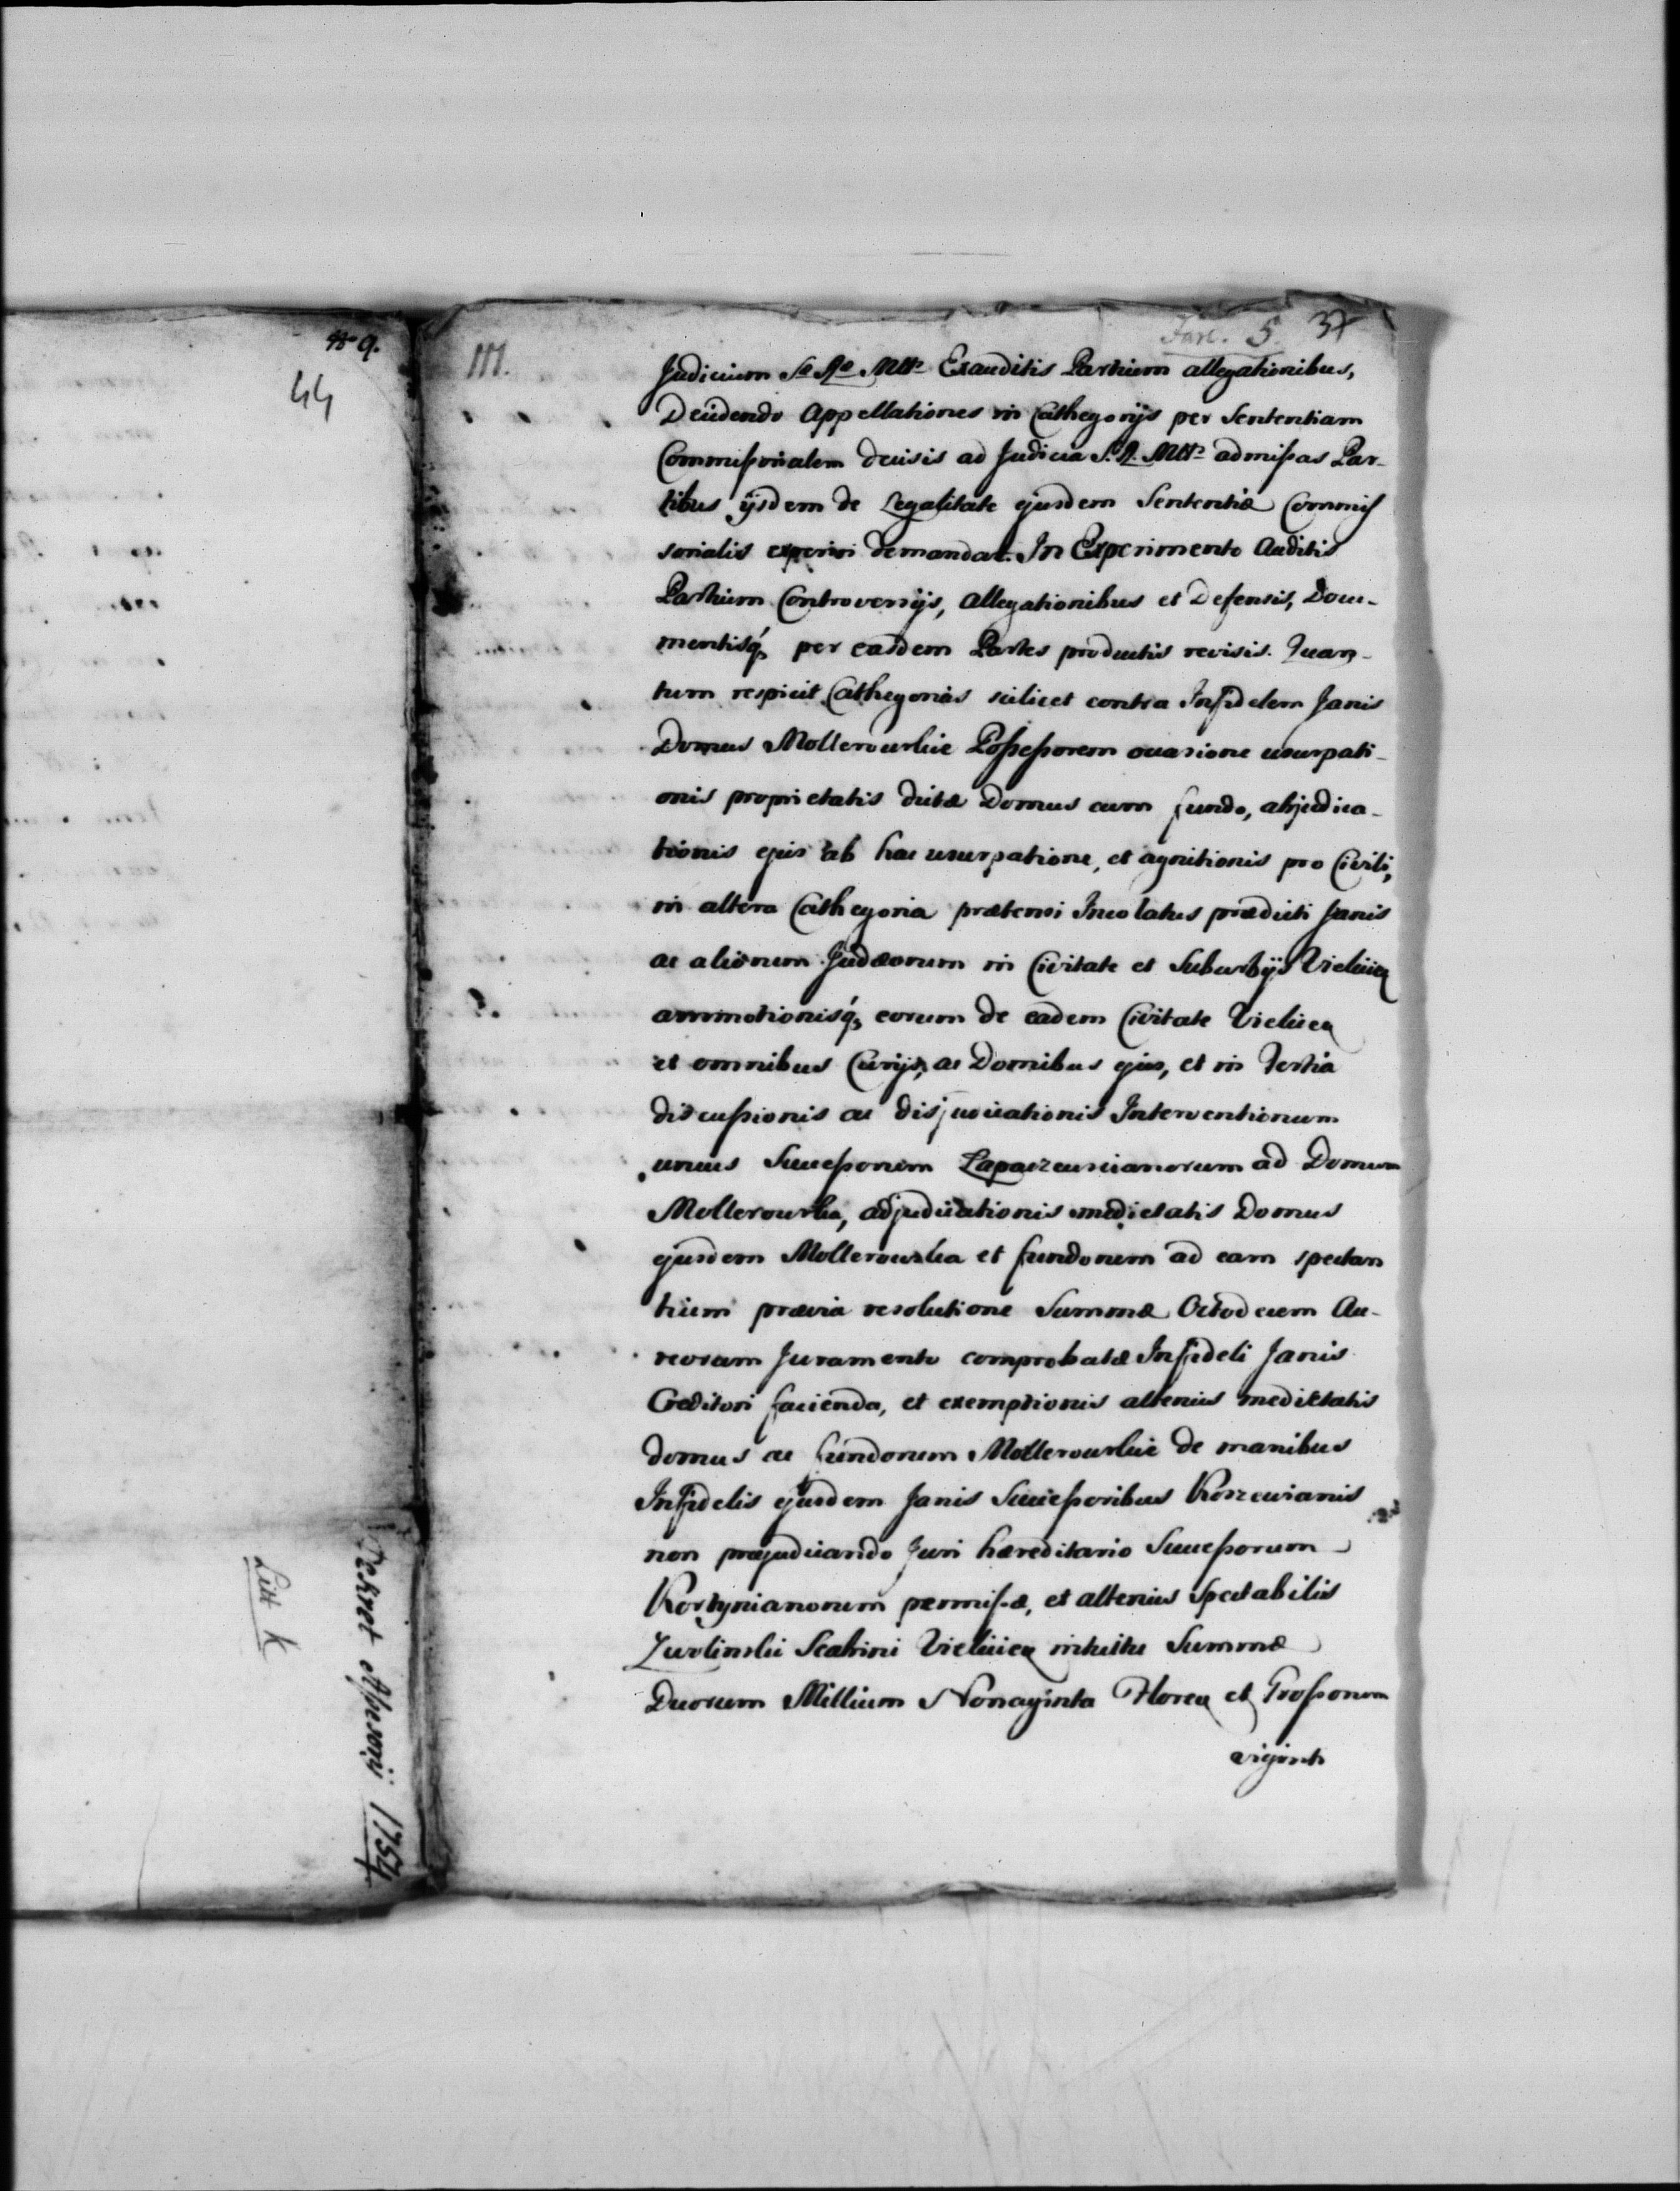 No 9.
44
Dekret Assesorij 1754
Litt K
III.
Fasc. 5. 37
Judicium Sæ Ræ Mttis Exauditis Partium allegationibus,
Decidendo Appellationes in Cathegorijs per Sententiam
Commissorialem decisis ad Judicia S. R. Mttis admissas Par-
tibus ijsdem de Legalitate ejusdem Sententiæ Commis
sorialis experiri demandat. In Experimento Auditis
Partium Controversijs, allegationibus et Defensis, Docu-
mentisq, per easdem Partes productis revisis. Quan-
tum respicit Cathegorias scilicet contra Infidelem Janis
Domus Mollerowskie Possessorem occasione usurpati-
onis proprietatis dictæ Domus cum fundo, abjudica-
tionis ejus ab hac usurpatione, et agnitionis pro Civili,
in altera Cathegoria prætensi Incolatus prædicti Janis
ac aliorum Judæorum in Civitate et Suburbijs Vieliciæ
ammotionisq, eorum de eadem Civitate Vieliciæ
et omnibus Curijs, ac Domibus ejus, et in Tertia
discussionis ac disjudicationis Interventionum
unius Successorum Lapaczewianorum ad Domum
Mollerowska, adjudicationis medietatis Domus
ejusdem Mollerowska et fundorum ad eam spectan
tium prævia resolutione Summæ Octodecem Au-
reorum Juramento comprobatæ Infideli Janis
Creditori facienda, et exemptionis alterius medietatis
domus ac fundorum Mollerowskie de manibus
Infidelis ejusdem Janis Successoribus Korzewianis
non præjudicando Juri hæreditario Successorum
Kortynianorum permissæ, et alterius Spectabilis
Zurlinskii Scabini Vieliciæ intuitu Summæ
Duorum Millium Nonaginta Floren et Grossorum
viginti